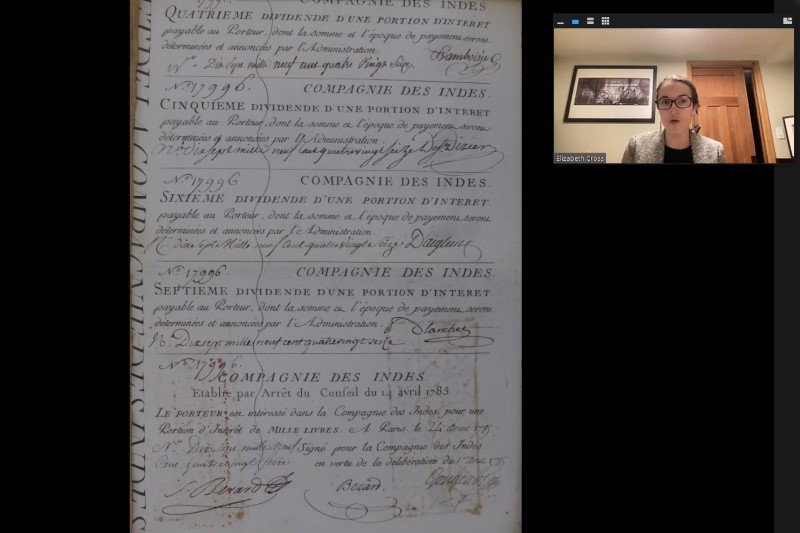 17996. COMPAGNIE DES INDES
QUATRIEME DIVIDENDE D'UNE PORTION D'INTERET
payable au Porteur, dont la somme et l'époque de payement seront
déterminées et annoncées par l'Administration.
No. Dix Sept mille neuf cent quatre vingt Seize
No. 17996. COMPAGNIE DES INDES.
CINQUIEME DIVIDENDE D'UNE PORTION D'INTERET
payable au Porteur, dont la somme et l'époque de payement seront
déterminées et annoncées par l'Administration.
No dix sept mille neuf cent quatre vingt seize
No. 17996 COMPAGNIE DES INDES.
SIXIÉME DIVIDENDE D'UNE PORTION D'INTERET
payable au Porteur, dont la somme et l'époque de payement seront
déterminées et annoncées par l'Administration.
No dix Sept Mille neuf Cent quatre Vingt Seize
No. 17996 COMPAGNIE DES INDES.
SEPTIEME DIVIDENDE D'UNE PORTION D'INTERET
payable au Porteur, dont la somme et l'époque de payement seront
déterminées et annoncées par l'Administration.
No. Dix sept mille neuf cent quatre vingt seize
No. 17996.
COMPAGNIE DES INDES
Etablie par Arrêt du Conseil du 14 avril 1785.
LE PORTEUR est intéressé dans la Compagnie des Indes, pour une
Portion d'Intérêt de MILLE LIVRES. A Paris, le 24
No. Dix Sept mille Neuf Signé pour la Compagnie des Indes
Cent quatre vingt seize en vertu de la délibération du
Bérard Bezard.
Elizabeth Cross